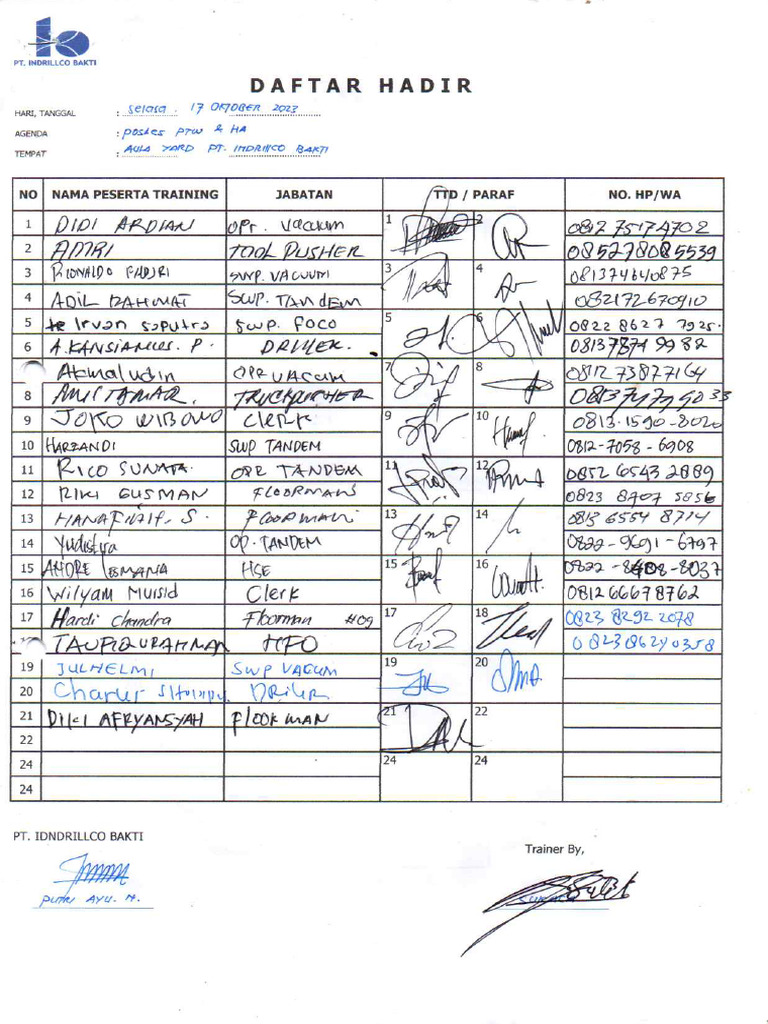 PT. INDRILLCO BAKTI
DAFTAR HADIR
HARI, TANGGAL : Selasa . 17 OKTOBER 2023
AGENDA : postes PTW & HA
TEMPAT : AULA YARD PT. INDRILLCO BAKTI
NO NAMA PESERTA TRAINING JABATAN TTD / PARAF NO. HP/WA
1 DIDI ARDIAN OPr. Vacuum 1 2 0812 7517 4702
2 AMRI TOOL PUSHER 085278085539
3 RIONALDO SWP. VACUUM 3 4 081374640875
4 ADIL RAHMAT SWP. TANDEM 082172670910
5 Irvan Saputra SWP. FOCO 5 6 0822 8627 7925.
6 A. P. DRILLER.
Akmaludin OPR VACUM 7 8 0812 73877164
8 TRUCKPUSHER
9 JOKO WIBOWO Clerk 9 10 0813-1590-8020
10 HARZANDI SWP TANDEM 0812-7058-6908
11 RICO SUNATA. OPR TANDEM 11 12 0852 6543 2889
12 RIKI GUSMAN FLOORMAN 0823 8707 5856
13 S. FLOORMAN 13 14 0813 6554 8714
14 Yudistira OP. TANDEM 0822-9691-6797
15 ANDRE LESMANA HSE 15 16
16 Wilyam Mursid Clerk 0812 6667 8762
17 Hardi Chandra Floorman #09 17 18 0823 8292 2078
TAUFIQURAHMAN HFO 0823 8624 0358
19 JULHELMI SWP VACUM 19 20
20 Charles DRiller
21 DIKI AFRYANSYAH FLOORMAN 21 22
22
24 24 24
24
PT. IDNDRILLCO BAKTI
Trainer By,
PUTRI AYU. N.